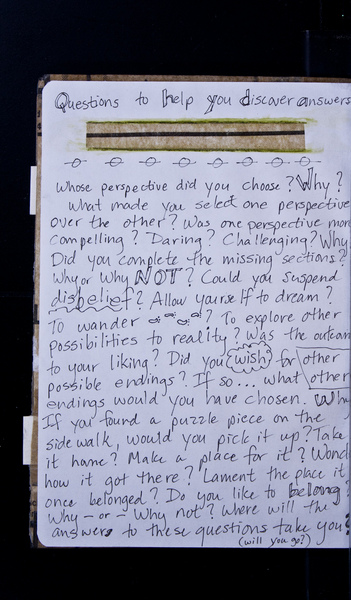 Questions to help you discover answers
Whose perspective did you choose? Why?
What made you select one perspective
over the other? Was one perspective more
compelling? Daring? Challenging? Why
Did you complete the missing sections?
Why or Why NOT? Could you suspend
disbelief? Allow yourself to dream?
To wander? To explore other
possibilities to reality? Was the outcom
to your liking? Did you wish for other
possible endings? If so... what other
endings would you have chosen. Why
If you found a puzzle piece on the
sidewalk, would you pick it up? Take
it home? Make a place for it? Wond
how it got there? Lament the place it
once belonged? Do you like to belong?
Why - or - Why not? Where will the
answers to these questions take you?
(will you go?)